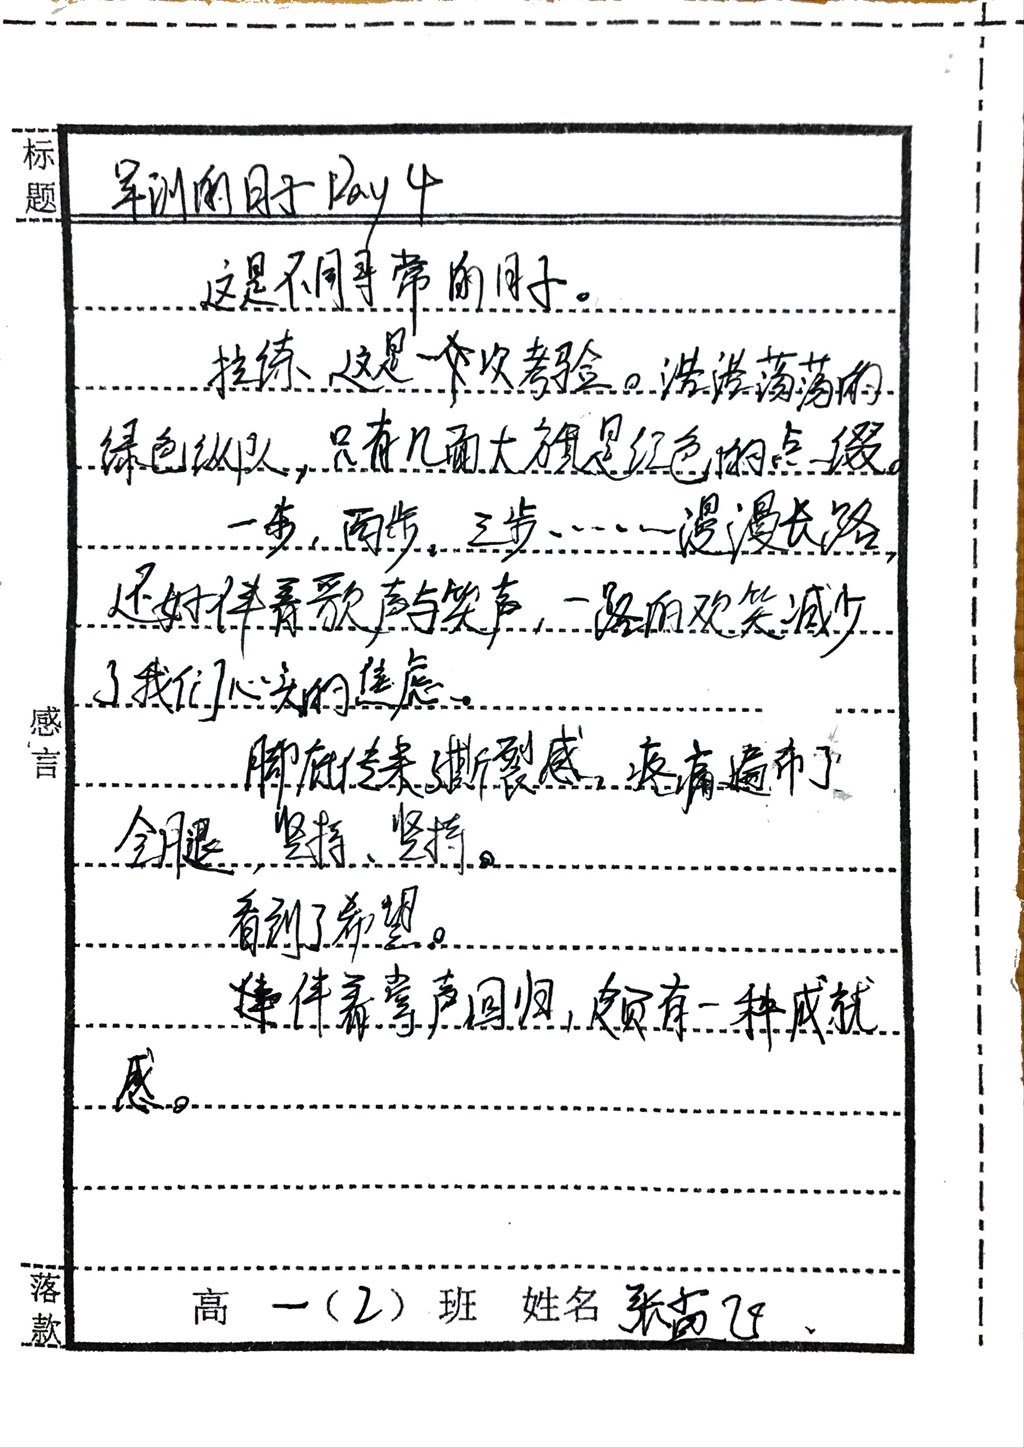 标题
军训的日子 Day 4
这是不同寻常的日子。
拉练、这是一次考验。浩浩荡荡的
绿色纵队，只有几面大旗是红色的点缀。
一步，两步，三步……漫漫长路，
还好伴着歌声与笑声，一路的欢笑减少
了我们心头的焦虑。
感言
脚底传来撕裂感，疼痛遍布了
全腿，坚持、坚持。
看到了希望。
伴着掌声回归，颇有一种成就
感。
落款
高一（2）班 姓名 张雷